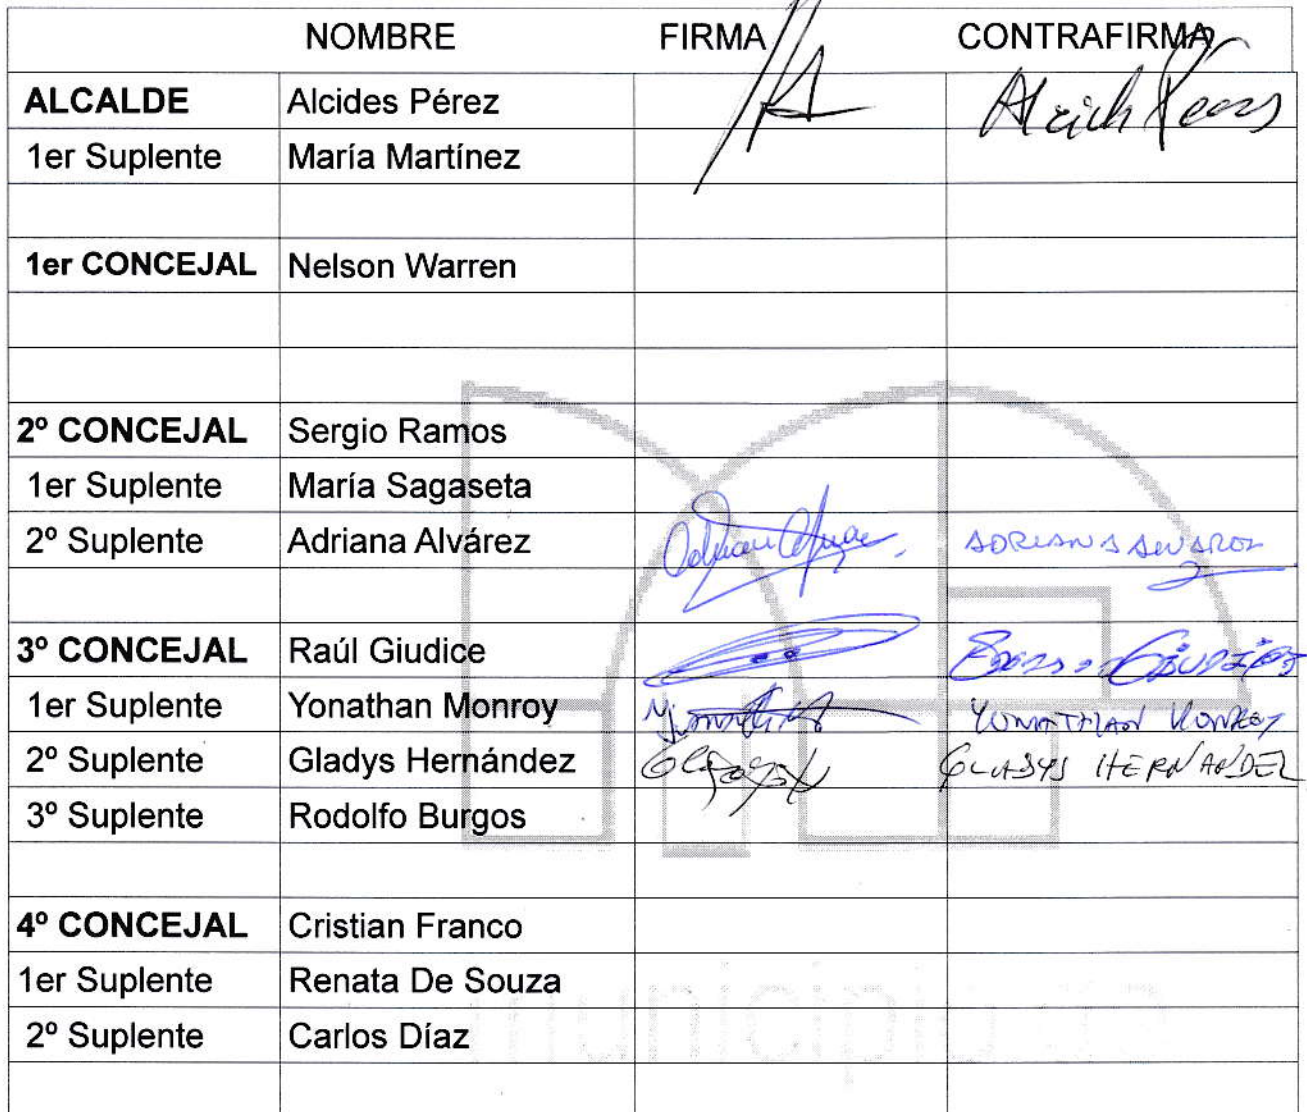 NOMBRE FIRMA CONTRAFIRMA
ALCALDE Alcides Pérez
1er Suplente María Martínez
1er CONCEJAL Nelson Warren
2º CONCEJAL Sergio Ramos
1er Suplente María Sagaseta
2º Suplente Adriana Alvárez ADRIANA ALVAREZ
3º CONCEJAL Raúl Giudice
1er Suplente Yonathan Monroy YONATHAN MONROY
2º Suplente Gladys Hernández GLADYS HERNANDEZ
3º Suplente Rodolfo Burgos
4º CONCEJAL Cristian Franco
1er Suplente Renata De Souza
2º Suplente Carlos Díaz